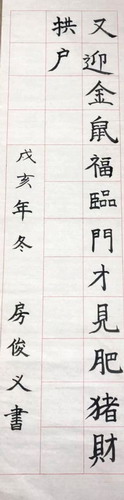 又迎金鼠福臨門才見肥猪財
拱户
戊亥年冬 房俊义書